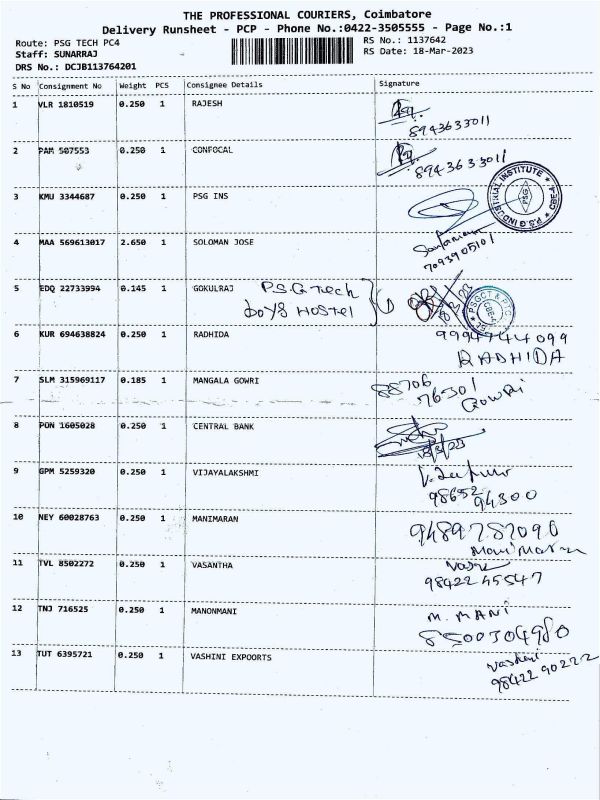 THE PROFESSIONAL COURIERS, Coimbatore
Delivery Runsheet - PCP - Phone No.:0422-3505555 - Page No.:1
Route: PSG TECH PC4
RS No.: 1137642
Staff: SUNARRAJ
RS Date: 18-Mar-2023
DRS No.: DCJB113764201
S No Consignment No Weight PCS Consignee Details Signature
1 VLR 1810519 0.250 1 RAJESH
8943633011
2 PAM 507553 0.250 1 CONFOCAL
8943633011
3 KMU 3344687 0.250 1 PSG INS
P.S.G INDUSTRIAL INSTITUTE ★ CBE-4 ★
PSG
4 MAA 569613017 2.650 1 SOLOMAN JOSE
7093905101
5 EDQ 22733994 0.145 1 GOKULRAJ P.S.G Tech
boys HOSTEL
PSGCT & PTC
6 KUR 694638824 0.250 1 RADHIDA 9994744099
RADHIDA
7 SLM 315969117 0.185 1 MANGALA GOWRI 88706
76301
Gowri
8 PON 1605028 0.250 1 CENTRAL BANK
9 GPM 5259320 0.250 1 VIJAYALAKSHMI
98652 94300
10 NEY 60028763 0.250 1 MANIMARAN 9489787090
Manimaran
11 TVL 8502272 0.250 1 VASANTHA
98422 45547
12 TNJ 716525 0.250 1 MANONMANI M. MANI
8500304980
13 TUT 6395721 0.250 1 VASHINI EXPOORTS Vashini
98422 90222